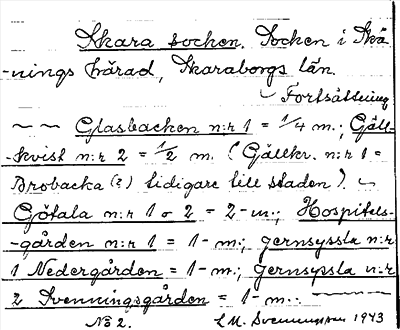 Skara socken. Socken i Skå
-nings härad, Skaraborgs län.
Fortsättning
~ ~ Glasbacken n:r 1 = 1/4 m.; Gäll-
-kvist n:r 2 = 1/2 m. (Gällkv. n:r 1 =
Brobacka (?) tidigare till staden). ~
Götala n:r 1 o 2 = 2-m.; Hospitels-
-gården n:r 1 = 1-m.; Jernsyssla n:r
1 Nedergården = 1-m.; Jernsyssla n:r
2 Svenningsgården = 1-m..
No 2. L.M. Svenungsson 1943